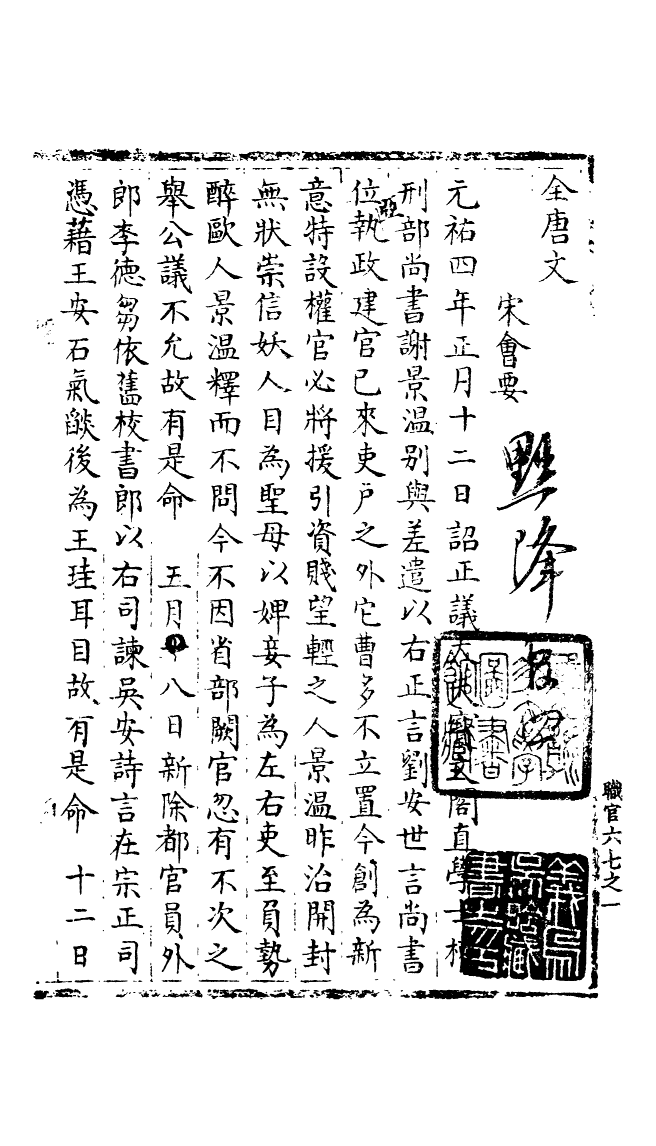 全唐文
宋會要
黜降
元祐四年正月十二日詔正議大夫寶文閣直學士權
刑部尚書謝景温别與差遣以右正言劉安世言尚書
位亞執政建官已來吏户之外它曹多不立置今創為新
意特設權官必將援引資賤望輕之人景温昨治開封
無狀崇信妖人目為聖母以婢妾子為左右吏至負勢
醉歐人景温釋而不問今不因省部闕官忽有不次之
舉公議不允故有是命 五月十八日新除都官員外
郎李德芻依舊校書郎以右司諫吳安詩言在宗正司
憑藉王安石氣燄後為王珪耳目故有是命 十二日
職官六七之一